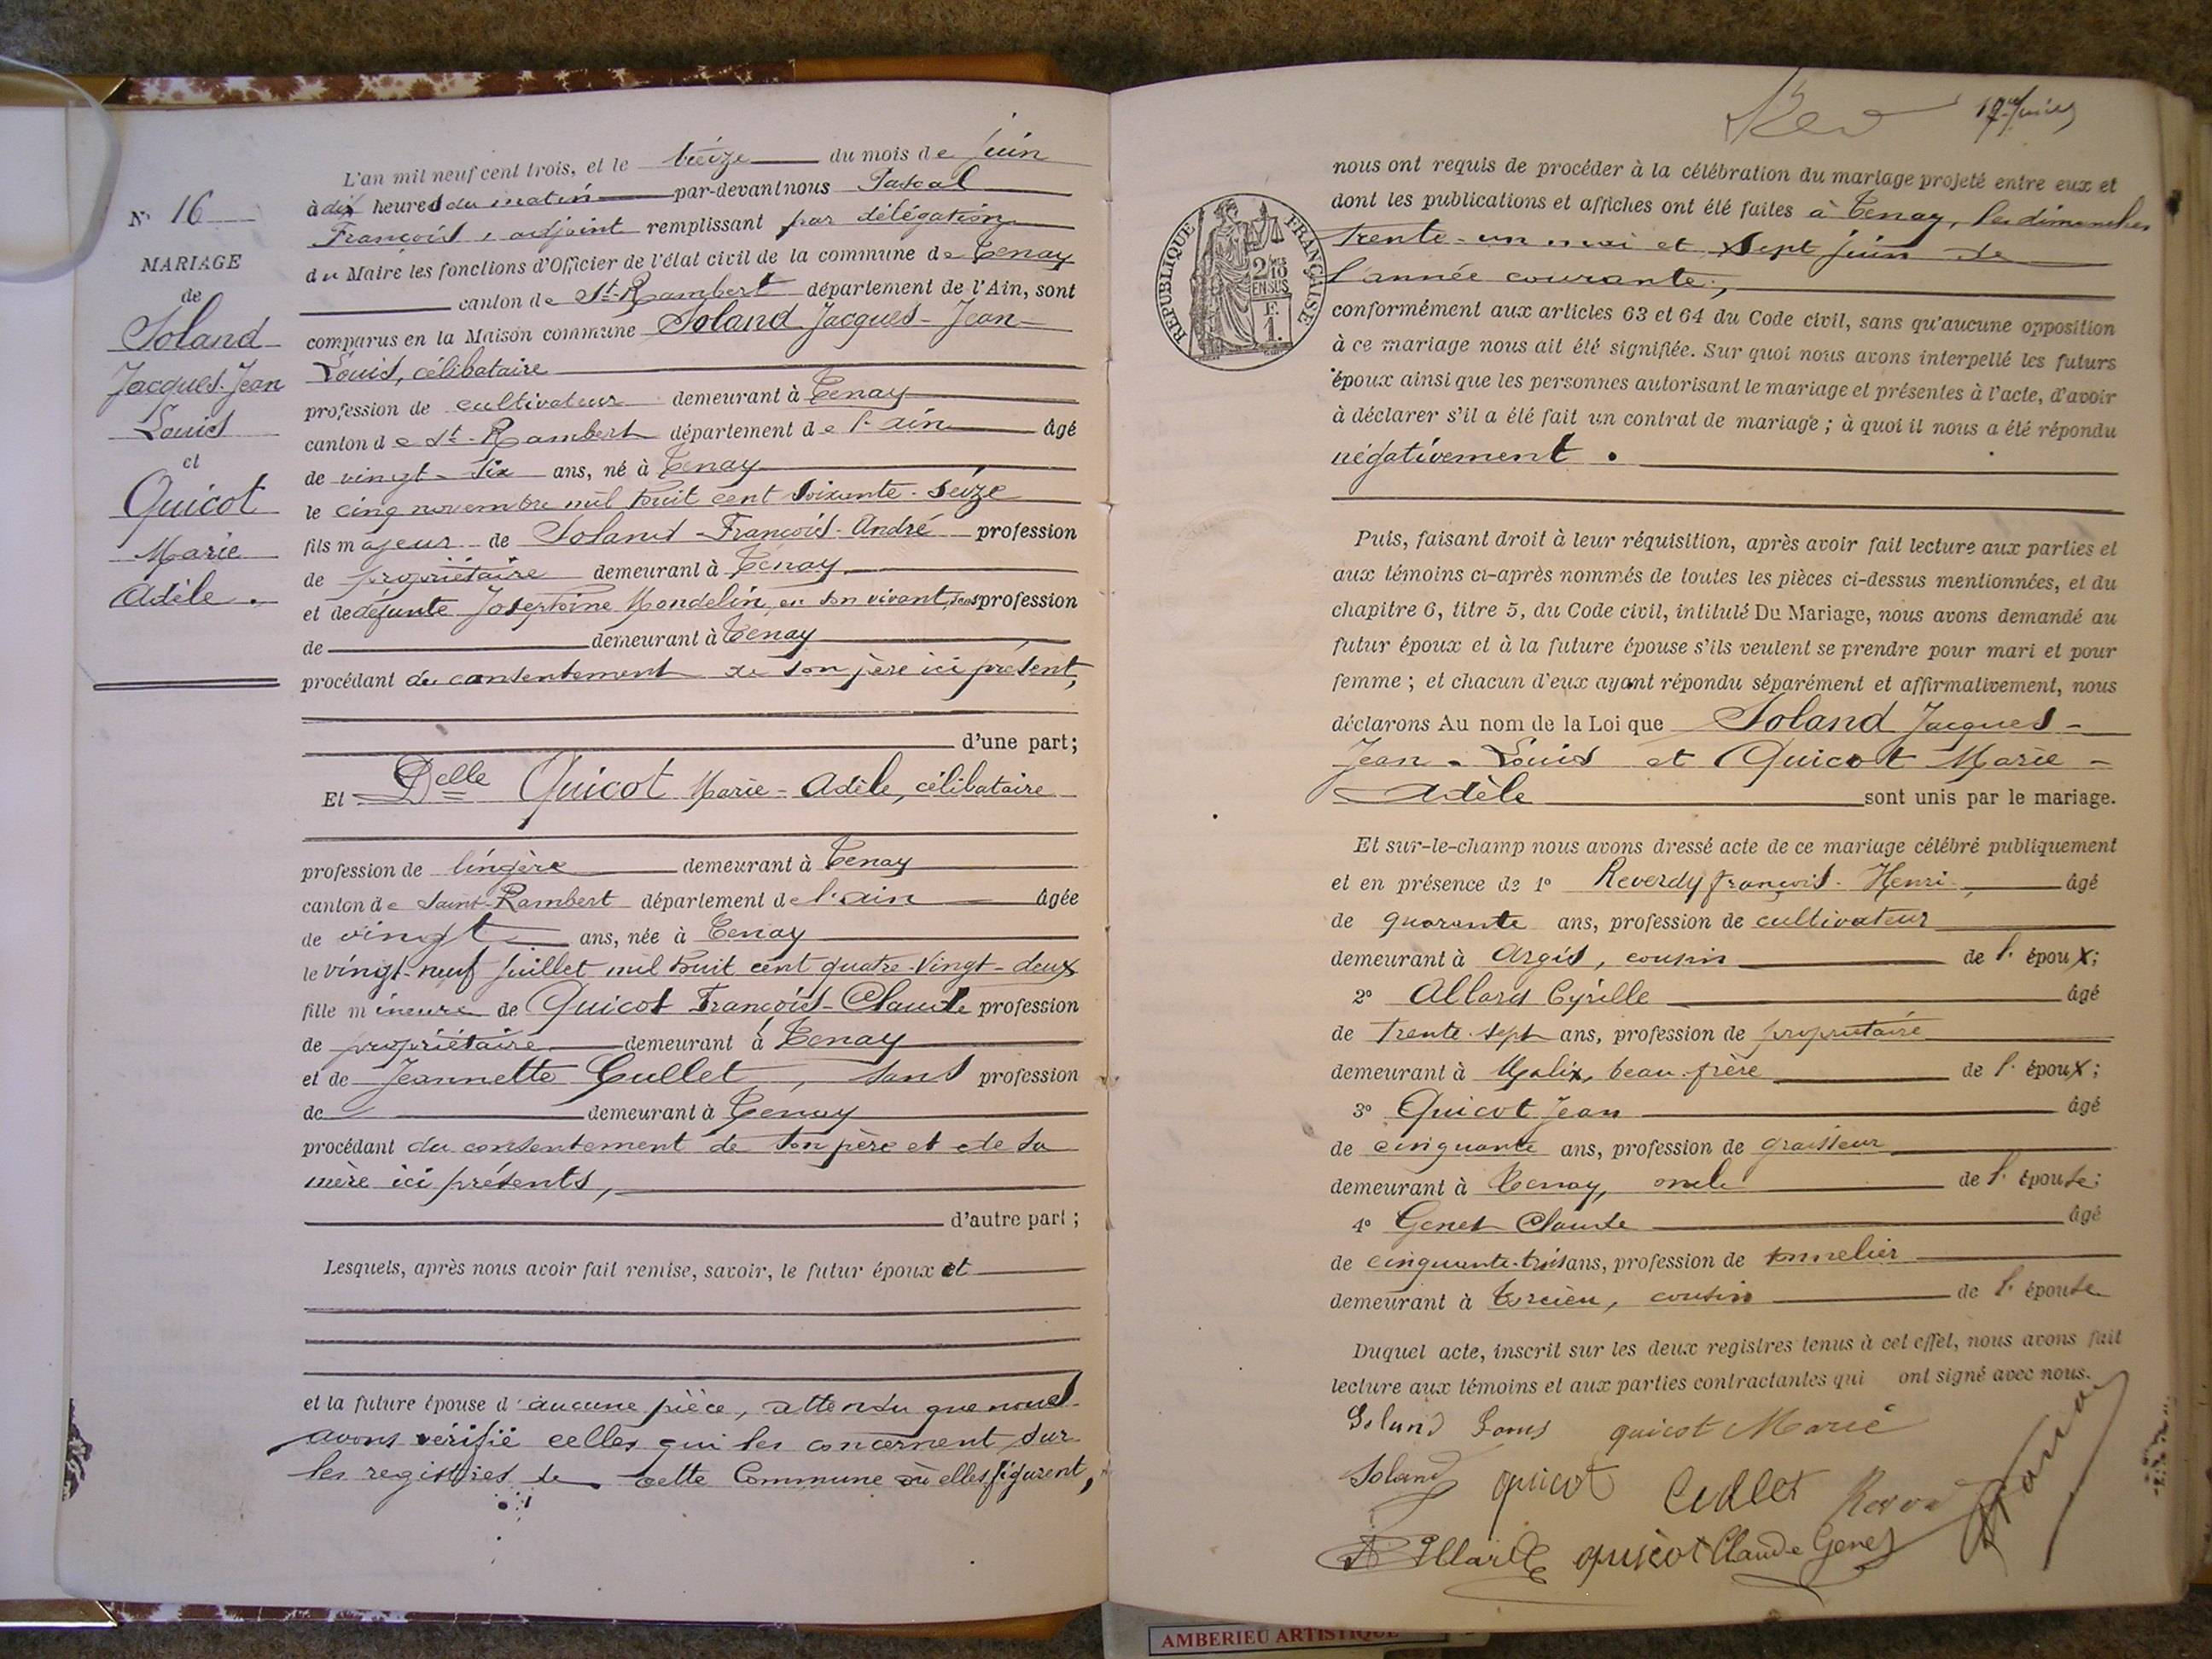 L'an mil neuf cent trois, et le treize du mois de juin
à dix heures du matin par-devant nous Pascal
François, adjoint remplissant par délégation
du Maire les fonctions d'Officier de l'état civil de la commune de Tenay
canton de St-Rambert département de l'Ain, sont
comparus en la Maison commune Soland Jacques-Jean-
Louis, célibataire
profession de cultivateur demeurant à Tenay
canton de St-Rambert département de l'ain âgé
de vingt-six ans, né à Tenay
le cinq novembre mil huit cent soixante-seize
fils majeur de Soland François-André profession
de propriétaire demeurant à Tenay
et de défunte Josephine Mondelin, en son vivant, sans profession
de demeurant à Tenay
procédant du consentement de son père ici présent,
d'une part;
Et Delle Quicot Marie-Adèle, célibataire
profession de lingère demeurant à Tenay
canton de Saint-Rambert département de l'ain âgée
de vingt ans, née à Tenay
le vingt-neuf juillet mil huit cent quatre-vingt-deux
fille mineure de Quicot François-Claude profession
de propriétaire demeurant à Tenay
et de Jeannette Cullet, sans profession
de demeurant à Tenay
procédant du consentement de son père et de sa
mère ici présents,
d'autre part;
Lesquels, après nous avoir fait remise, savoir, le futur époux et
et la future épouse d'aucune pièce, attendu que nous
avons vérifié celles qui les concernent sur
les registres de cette Commune où elles figurent,
N° 16
MARIAGE
de
Soland
Jacques-Jean
Louis
et
Quicot
Marie
Adèle.
nous ont requis de procéder à la célébration du mariage projeté entre eux et
dont les publications et affiches ont été faites à Tenay, les dimanches
trente-un mai et sept juin de
l'année courante,
conformément aux articles 63 et 64 du Code civil, sans qu'aucune opposition
à ce mariage nous ait été signifiée. Sur quoi nous avons interpellé les futurs
époux ainsi que les personnes autorisant le mariage et présentes à l'acte, d'avoir
à déclarer s'il a été fait un contrat de mariage; à quoi il nous a été répondu
négativement.
RÉPUBLIQUE FRANÇAISE
2/10
EN SUS
F.
1.
Puis, faisant droit à leur réquisition, après avoir fait lecture aux parties et
aux témoins ci-après nommés de toutes les pièces ci-dessus mentionnées, et du
chapitre 6, titre 5, du Code civil, intitulé Du Mariage, nous avons demandé au
futur époux et à la future épouse s'ils veulent se prendre pour mari et pour
femme; et chacun d'eux ayant répondu séparément et affirmativement, nous
déclarons Au nom de la Loi que Soland Jacques-
Jean-Louis et Quicot Marie-
Adèle sont unis par le mariage.
Et sur-le-champ nous avons dressé acte de ce mariage célébré publiquement
et en présence de 1° Reverdy François-Henri, âgé
de quarante ans, profession de cultivateur
demeurant à Argis, cousin de l'époux;
2° Allard Cyrille âgé
de trente-sept ans, profession de propriétaire
demeurant à Malix, beau-frère de l'époux;
3° Quicot Jean âgé
de cinquante ans, profession de graisseur
demeurant à Tenay, oncle de l'épouse;
4° Genet Claude âgé
de cinquante-trois ans, profession de tonnelier
demeurant à Torcieu, cousin de l'épouse
Duquel acte, inscrit sur les deux registres tenus à cet effet, nous avons fait
lecture aux témoins et aux parties contractantes qui ont signé avec nous.
Soland Louis quicot Marie
Soland quicot Cullet
Allard quicot Claude Genet
AMBERIEU ARTISTIQUE